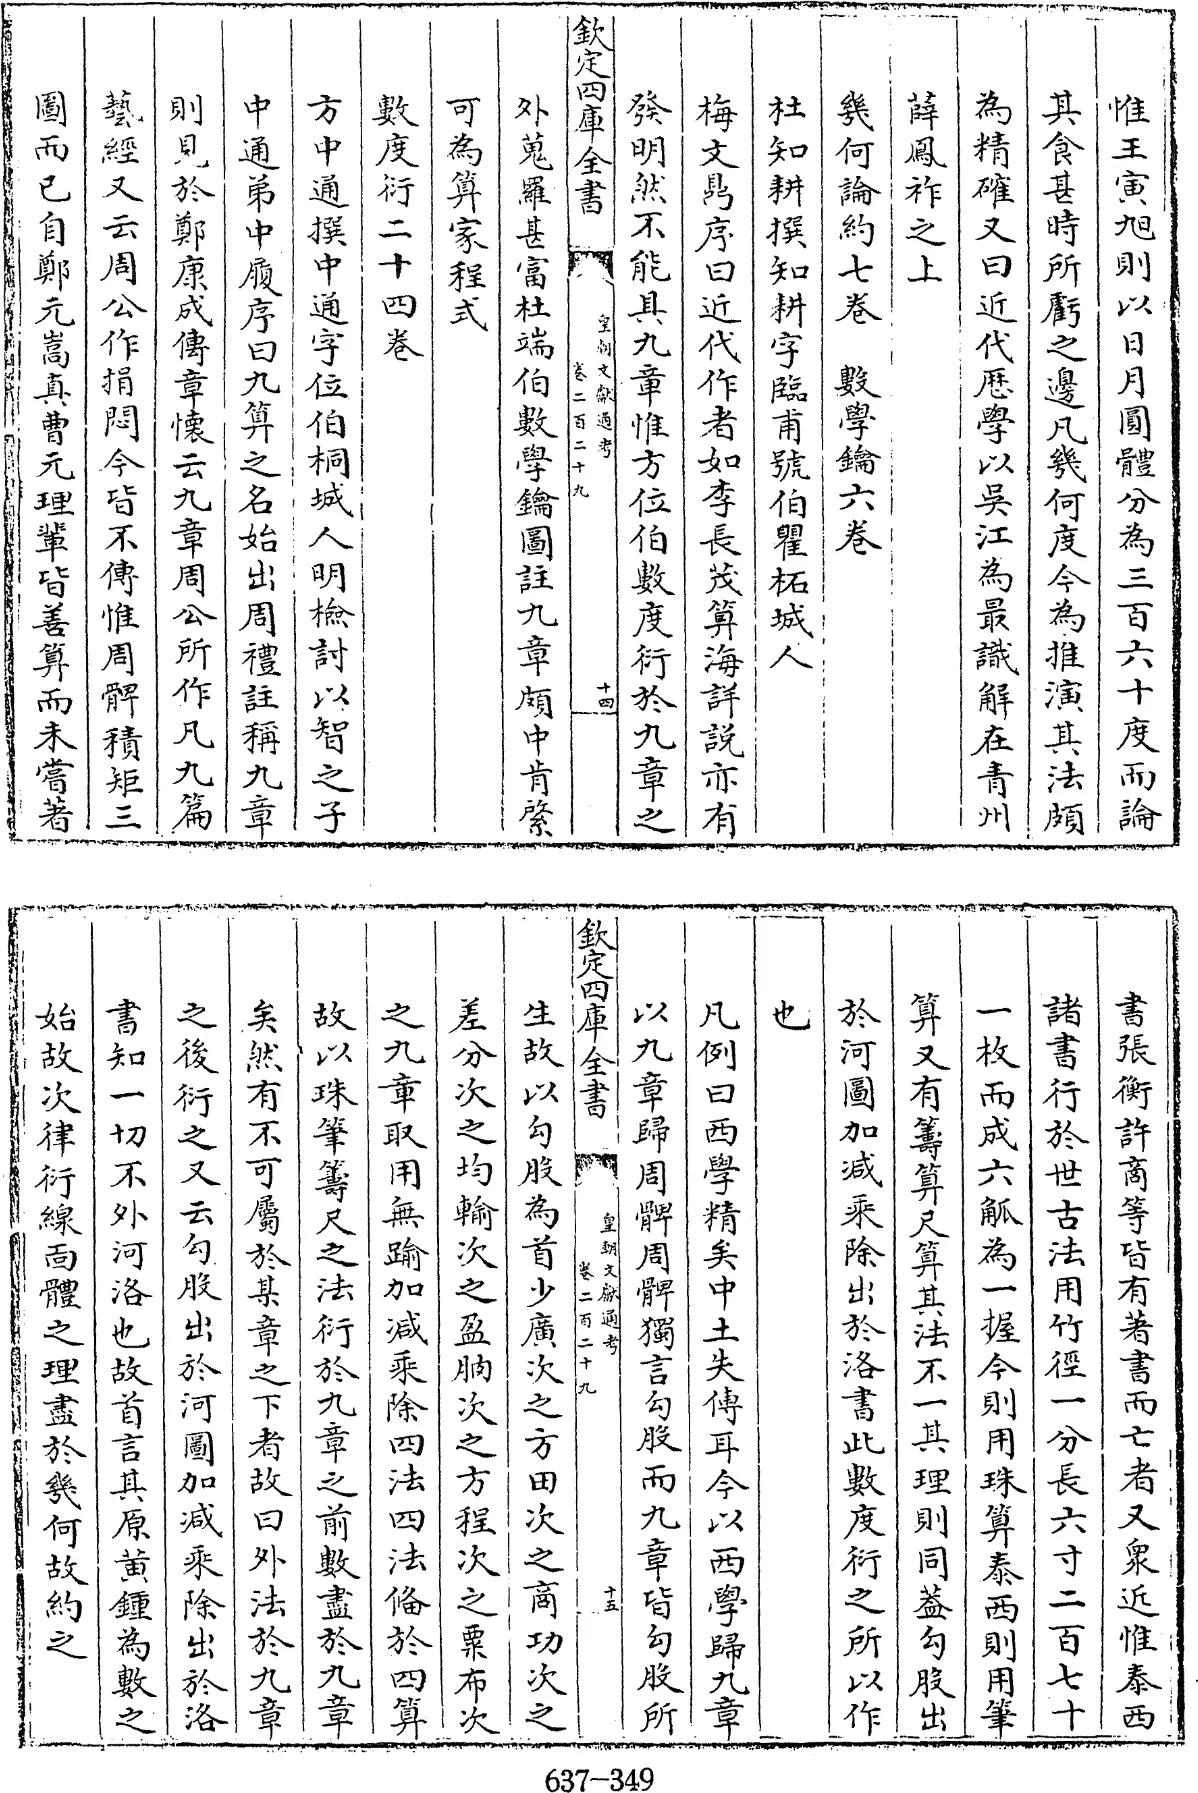 惟王寅旭則以日月圓體分為三百六十度而論
其食甚時所虧之邊凡幾何度今為推演其法頗
為精確又曰近代歴學以吳江為最識解在青州
薛鳳祚之上
幾何論約七卷　數學鑰六卷
杜知耕撰知耕字臨甫號伯瞿柘城人
梅文鼎序曰近代作者如李長茂算海詳説亦有
發明然不能具九章惟方位伯數度衍於九章之
欽定四庫全書
皇朝文獻通考
卷二百二十九
十四
外蒐羅甚富杜端伯數學鑰圖註九章頗中肯綮
可為算家程式
數度衍二十四卷
方中通撰中通字位伯桐城人明檢討以智之子
中通弟中履序曰九算之名始出周禮註稱九章
則見於鄭康成傳章懷云九章周公所作凡九篇
藝經又云周公作捐悶今皆不傳惟周髀積矩三
圖而已自鄭元嵩真曹元理輩皆善算而未嘗著
書張衡許商等皆有著書而亡者又衆近惟泰西
諸書行於世古法用竹徑一分長六寸二百七十
一枚而成六觚為一握今則用珠算泰西則用筆
算又有籌算尺算其法不一其理則同蓋勾股出
於河圖加减乘除出於洛書此數度衍之所以作
也
凡例曰西學精矣中土失傳耳今以西學歸九章
以九章歸周髀周髀獨言勾股而九章皆勾股所
欽定四庫全書
皇朝文獻通考
卷二百二十九
十五
生故以勾股為首少廣次之方田次之商功次之
差分次之均輸次之盈朒次之方程次之粟布次
之九章取用無踰加减乘除四法四法備於四算
故以珠筆籌尺之法衍於九章之前數盡於九章
矣然有不可屬於某章之下者故曰外法於九章
之後衍之又云勾股出於河圖加减乘除出於洛
書知一切不外河洛也故首言其原黄鍾為數之
始故次律衍線面體之理盡於幾何故約之
637-349